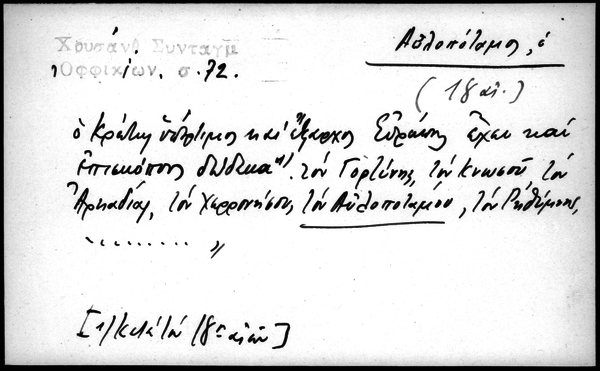 Χρυσάνθ Συνταγμ
Ὀφφικίων. σ. 72.
Αὐλοπόταμος, ὁ
(18 αἰ.)
ὁ Κρήτης ὑπέρτιμος καὶ ἔξαρχος Εὐρώπης ἔχει καὶ
ἐπισκόπους δώδεκα "1) τὸν Γορτύνης, τὸν Κνωσοῦ, τὸν
Ἀρκαδίας, τὸν Χερρονήσου, τὸν Αὐλοποτάμου, τὸν Ρηθύμνης,
.......... "
[1) Κατὰ τὸν 18ον αἰῶνα]